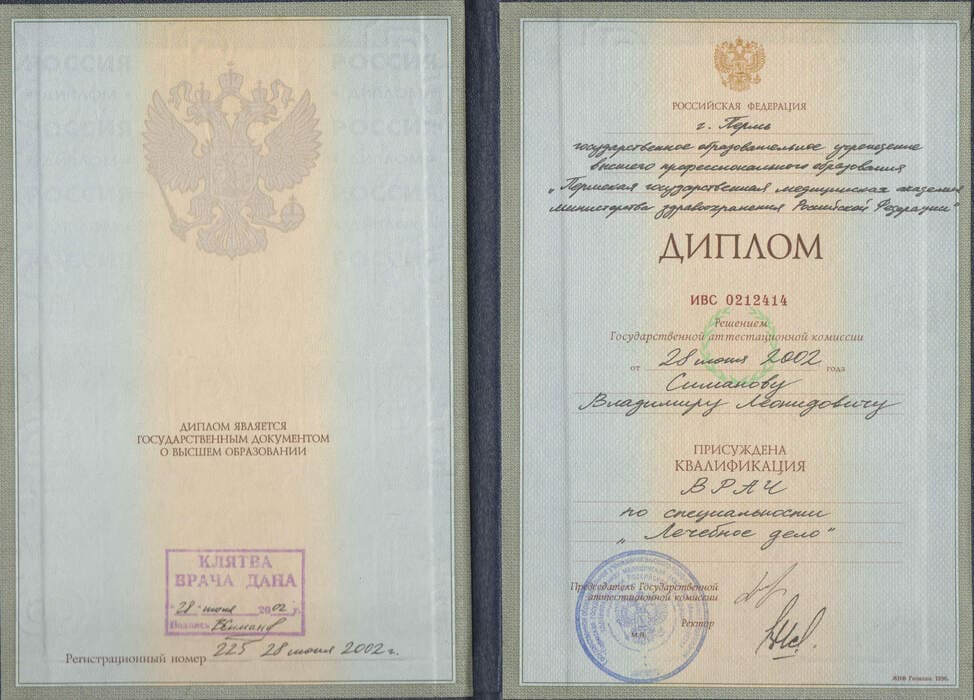 ДИПЛОМ ЯВЛЯЕТСЯ
ГОСУДАРСТВЕННЫМ ДОКУМЕНТОМ
О ВЫСШЕМ ОБРАЗОВАНИИ
КЛЯТВА
ВРАЧА ДАНА
"28" июня 2002 г.
Подпись
Регистрационный номер 225 28 июня 2002 г.
РОССИЙСКАЯ ФЕДЕРАЦИЯ
г. Пермь
государственное образовательное учреждение
высшего профессионального образования
"Пермская государственная медицинская академия
Министерства здравоохранения Российской Федерации"
ДИПЛОМ
ИВС 0212414
Решением
Государственной аттестационной комиссии
от 28 июня 2002 года
Симанову
Владимиру Леонидовичу
ПРИСУЖДЕНА
КВАЛИФИКАЦИЯ
ВРАЧ
по специальности
"Лечебное дело"
Председатель Государственной
аттестационной комиссии
Ректор
М.П.